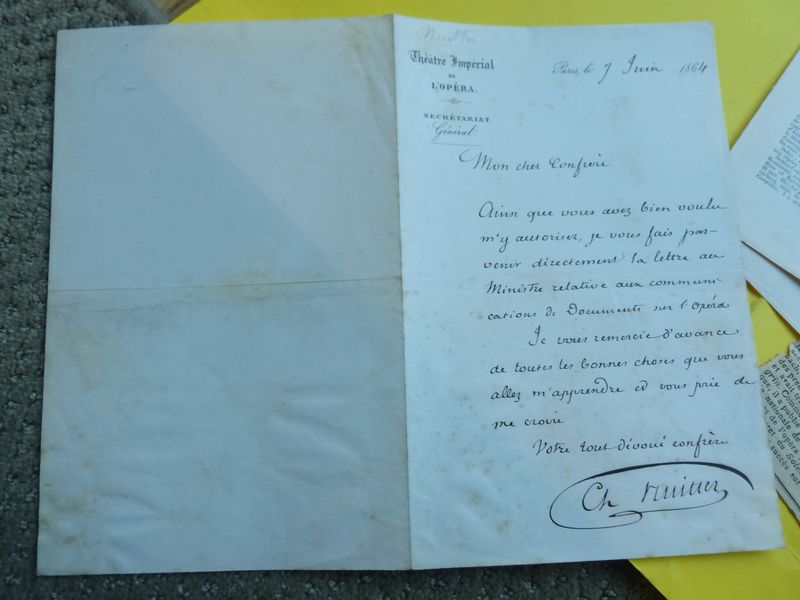 Théâtre Impérial
DE
L'OPÉRA.
SECRÉTARIAT
Général
Paris, le 7 Juin 1864
Mon cher Confrère
Ainsi que vous avez bien voulu
m'y autoriser, je vous fais par-
venir directement la lettre au
Ministre relative aux communi-
cations de Documents sur l'Opéra
Je vous remercie d'avance
de toutes les bonnes choses que vous
allez m'apprendre et vous prie de
me croire
Votre tout dévoué confrère
Ch Nuitter